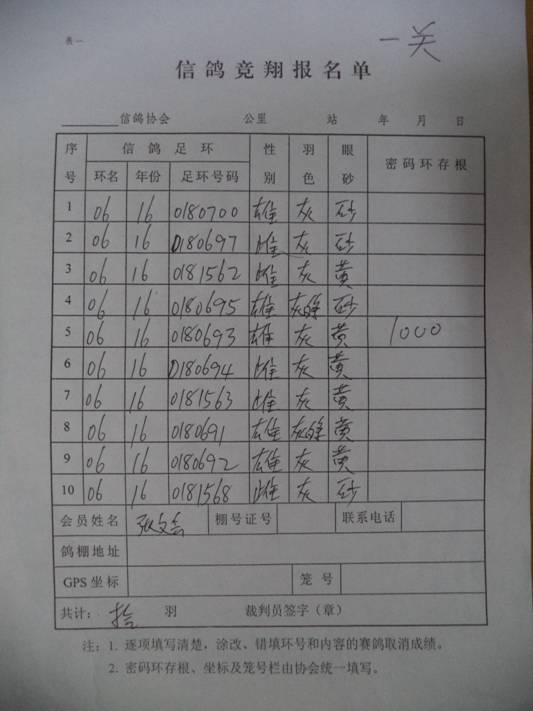 表一
一关
信鸽竞翔报名单
信鸽协会 公里 站 年 月 日
序号 信鸽足环 性别 羽色 眼砂 密码环存根
环名 年份 足环号码
1 06 16 0180700 雄 灰 砂
2 06 16 0180697 雌 灰 砂
3 06 16 0181562 雌 灰 黄
4 06 16 0180695 雄 灰 砂
5 06 16 0180693 雄 灰 黄 1000
6 06 16 0180694 雌 灰 黄
7 06 16 0181563 雌 灰 黄
8 06 16 0180691 雄 灰 黄
9 06 16 0180692 雄 灰 黄
10 06 16 0181568 雌 灰 砂
会员姓名 张文会 棚号证号 联系电话
鸽棚地址
GPS坐标 笼号
共计：拾 羽 裁判员签字（章）
注：1. 逐项填写清楚，涂改、错填环号和内容的赛鸽取消成绩。
2. 密码环存根、坐标及笼号栏由协会统一填写。